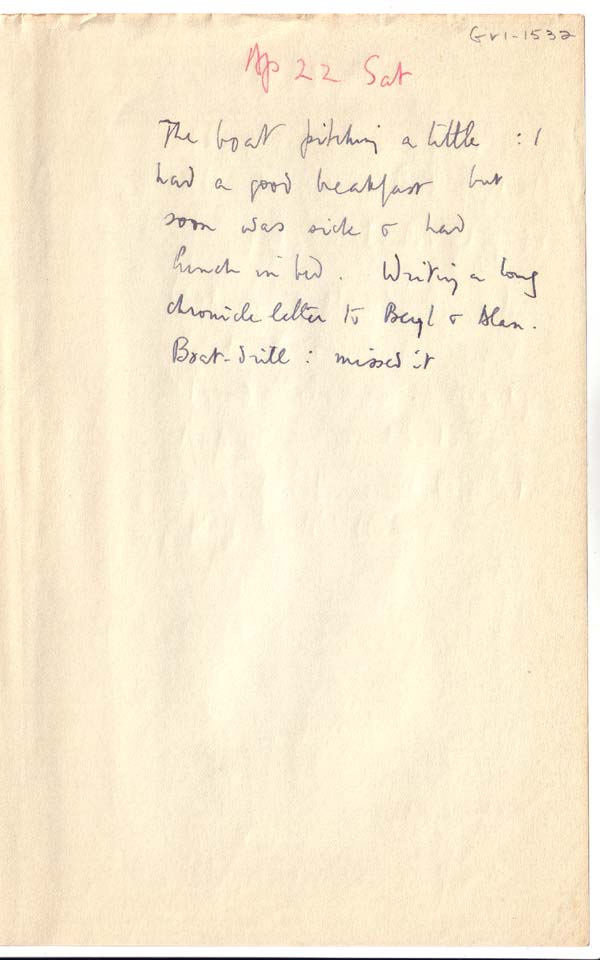 Gr1-1532
Ap 22 Sat
The boat pitching a little : I
had a good breakfast but
soon was sick & had
lunch in bed. Writing a long
chronicle letter to Beryl & Alan.
Boat-drill : missed it